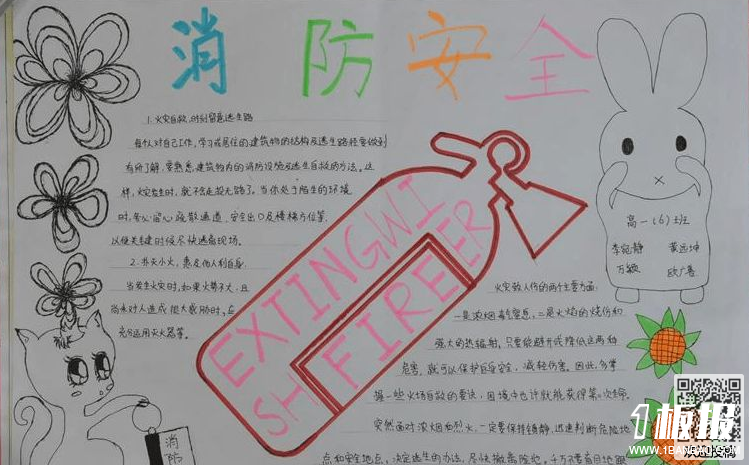 消防安全
1.火灾自救,时刻留意逃生路
每个人对自己工作,学习或居住的建筑物的结构及逃生路径要做到
有所了解,要熟悉建筑物内的消防设施及逃生自救的方法。这
样,火灾发生时,就不会走投无路了。当你处于陌生的环境
时,务必留心疏散通道,安全出口及楼梯方位等,
以便关键时候尽快逃离现场。
2.扑灭小火,惠及他人利自身
当发生火灾时,如果火势不大,且
尚未对人造成很大威胁时,应
充分运用灭火器等。
EXTINGWI
SH FIREER
高一(6)班
李宛静 黄远坤
万颖 欧广惠
火灾致人伤的两个主要方面:
一是浓烟毒气窒息,二是火焰的烧伤和
强大的热辐射,只要能避开或降低这两种
危害,就可以保护自身安全,减轻伤害。因此,多掌
握一些火场自救的要诀,困境中也许就能获得第二次生命。
突然面对浓烟和烈火,一定要保持镇静,迅速判断危险地
点和安全地点,决定逃生的办法,尽快撤离险地。千万不要盲目地跟
消防
1板报
WWW.1BANBAO.COM
欢迎投稿